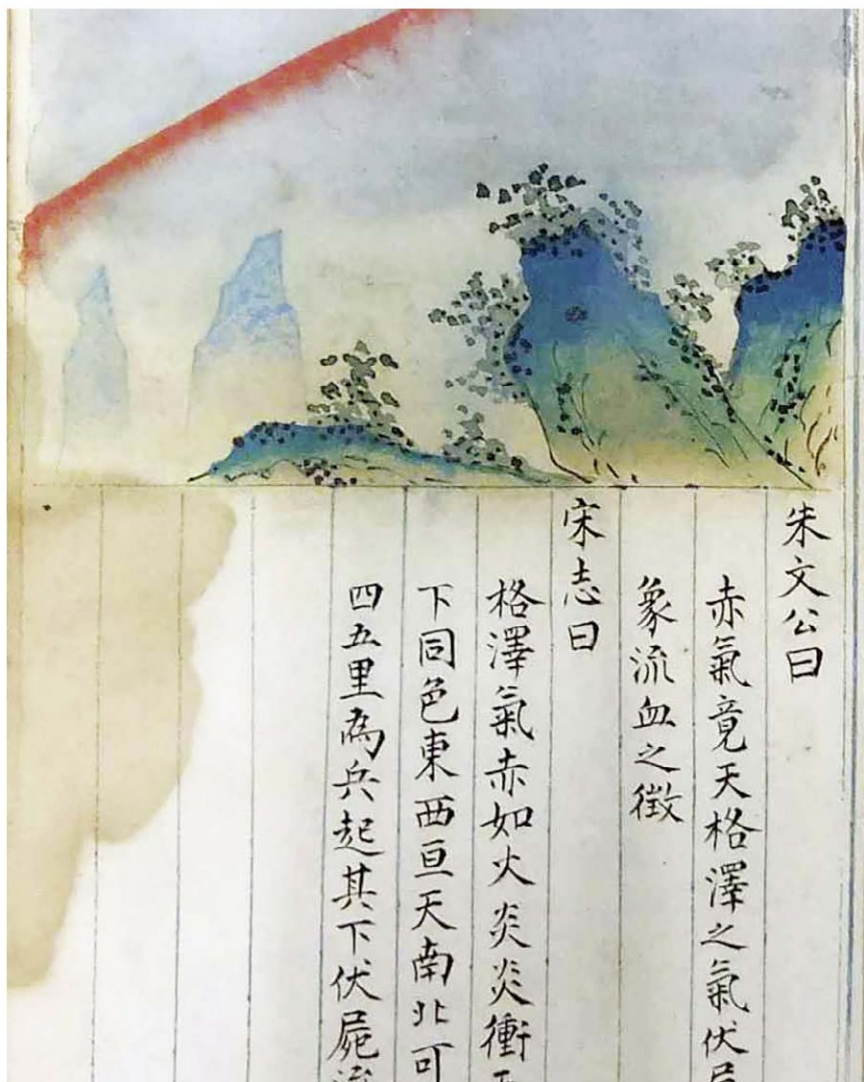 朱文公曰
赤氣竟天格澤之氣伏
象流血之徵
宋志曰
格澤氣赤如火炎炎衝
下同色東西亘天南北可
四五里為兵起其下伏屍